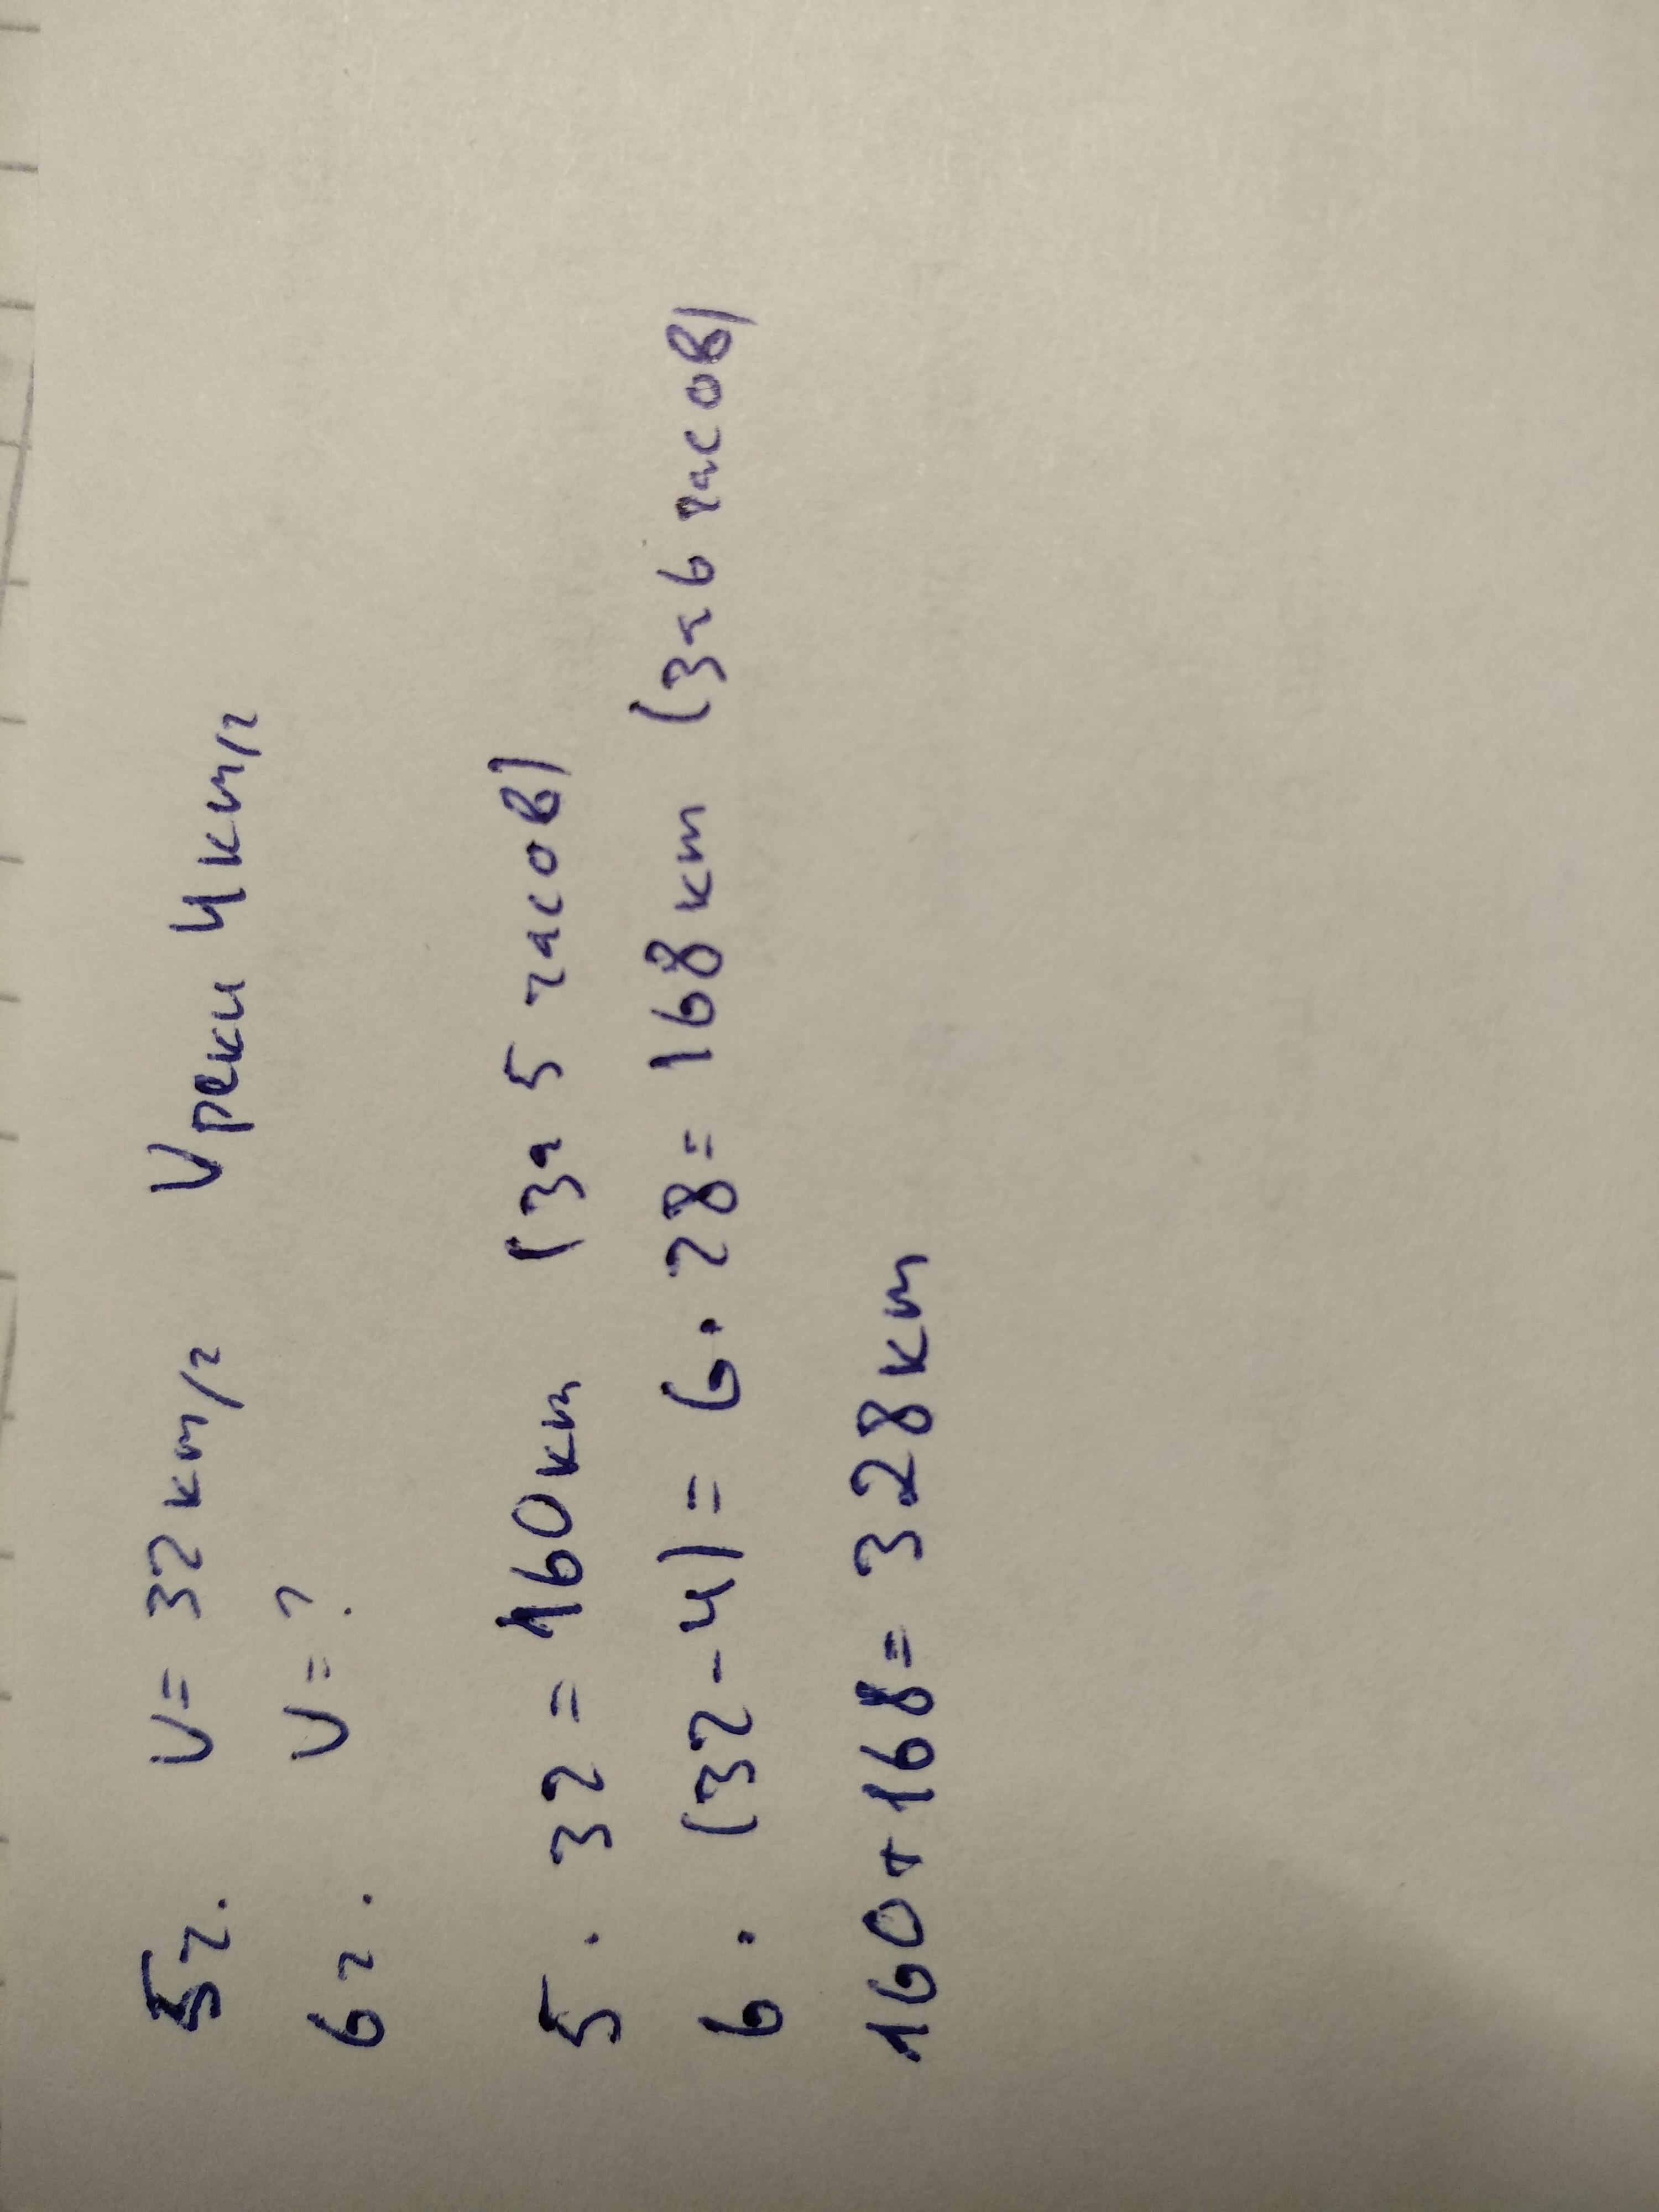 5ч. V = 32 км/ч Vреки 4км/ч
6ч. V = ?
5 · 32 = 160км (за 5 часов)
6 · (32-4) = 6 · 28 = 168 км (за 6 часов)
160+168 = 328 км